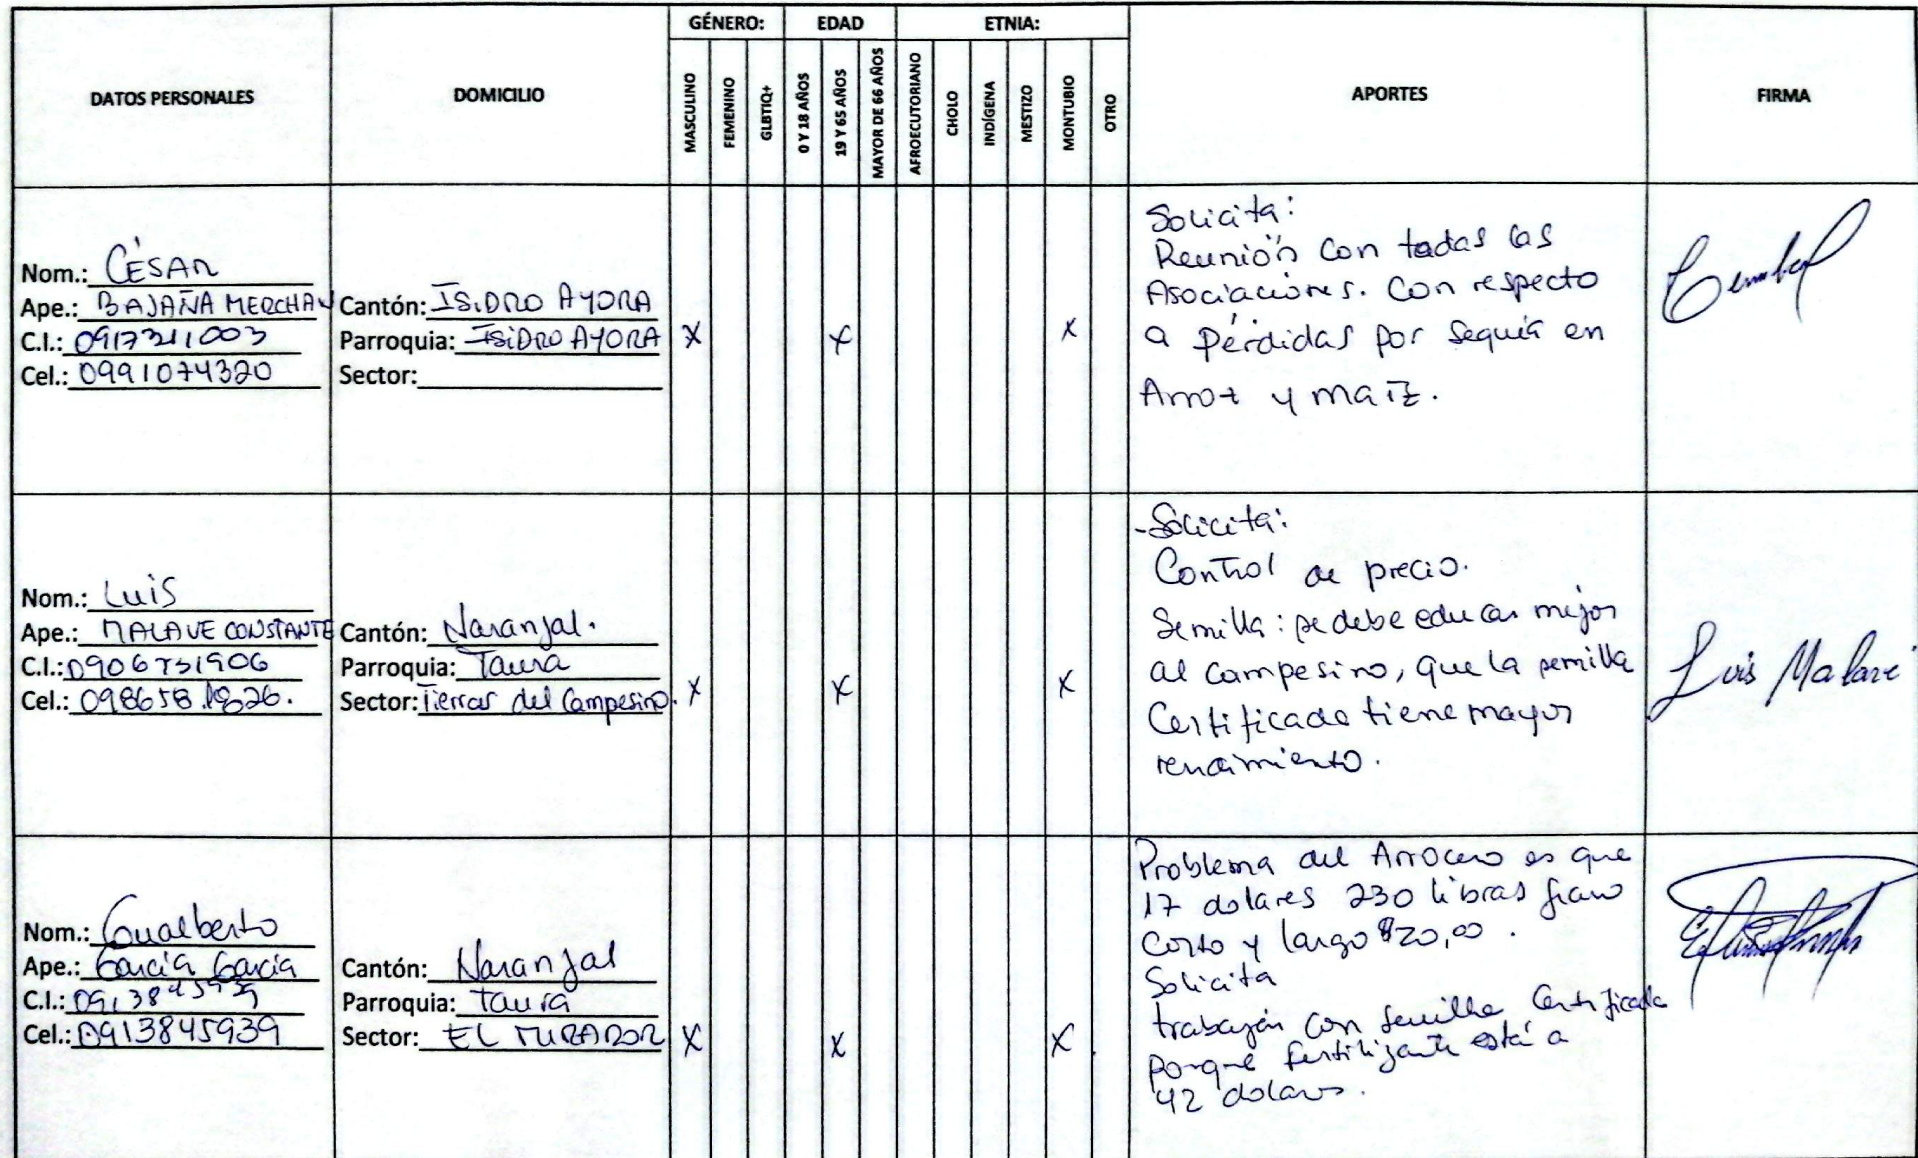 GÉNERO: EDAD ETNIA:
DATOS PERSONALES DOMICILIO MASCULINO FEMENINO GLBTIQ+ 0 Y 18 AÑOS 19 Y 65 AÑOS MAYOR DE 66 AÑOS AFROECUTORIANO CHOLO INDÍGENA MESTIZO MONTUBIO OTRO APORTES FIRMA
Nom.: CÉSAR
Ape.: BAJAÑA MERCHAN
C.I.: 0917311003
Cel.: 0991074320
Cantón: ISIDRO AYORA
Parroquia: ISIDRO AYORA
Sector:
X X X
Solicita:
Reunión con todas las
Asociaciones. Con respecto
a pérdidas por sequía en
Arroz y maíz.
Nom.: Luis
Ape.: MALAVE CONSTANTE
C.I.: 0906731906
Cel.: 098658.1826.
Cantón: Naranjal.
Parroquia: Taura
Sector: Tierras del Campesino.
X X X
-Solicita:
Control de precio.
Semilla: se debe educar mejor
al campesino, que la semilla
Certificada tiene mayor
rendimiento.
Luis Malavé
Nom.: Gualberto
Ape.: García García
C.I.: 0913845939
Cel.: 0913845939
Cantón: Naranjal
Parroquia: taura
Sector: EL MIRADOR
X X X.
Problema del Arrocero es que
17 dolares 230 libras grano
corto y largo $20,00.
Solicita
trabajen con semilla Certificada
porque fertilizante está a
42 dolares.